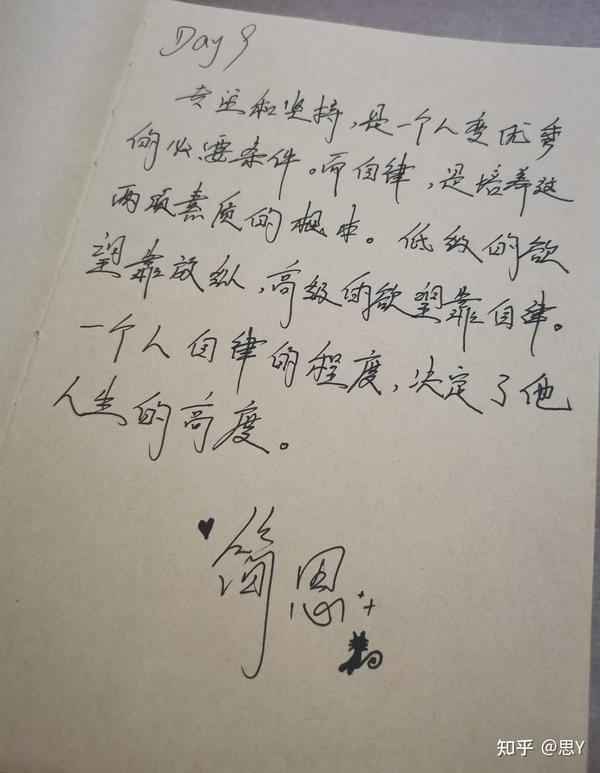 Day 9
专注和坚持,是一个人变优秀
的必要条件。而自律,是培养这
两项素质的根本。低级的欲
望靠放纵,高级的欲望靠自律。
一个人自律的程度,决定了他
人生的高度。
简思
知乎 @思Y